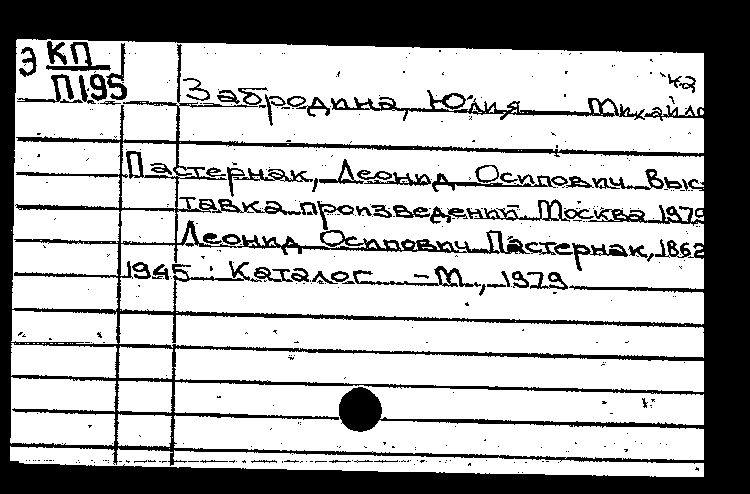 Э КП
П195
к2
Забродина, Юлия Михайло
Пастернак, Леонид Осипович. Выс
тавка произведений. Москва 1979
Леонид Осипович Пастернак, 1862
1945 : Каталог. – М., 1979